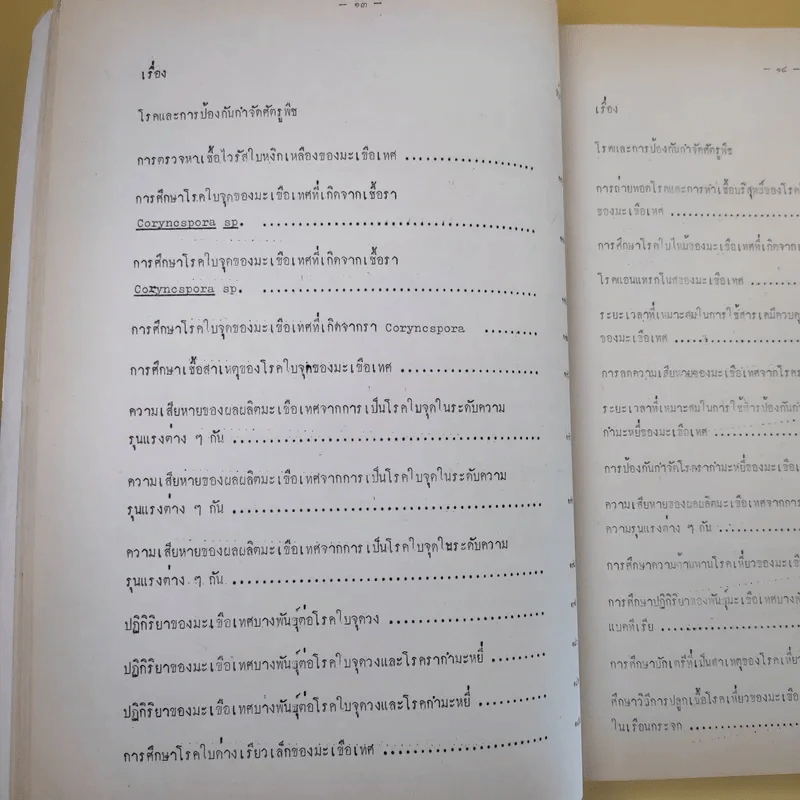 - ๑๓ -
เรื่อง
โรคและการป้องกันกำจัดศัตรูพืช
การตรวจหาเชื้อไวรัสใบหงิกเหลืองของมะเขือเทศ
การศึกษาโรคใบจุดของมะเขือเทศที่เกิดจากเชื้อรา
Coryncspora sp.
การศึกษาโรคใบจุดของมะเขือเทศที่เกิดจากเชื้อรา
Coryncspora sp.
การศึกษาโรคใบจุดของมะเขือเทศที่เกิดจากรา Coryncspora
การศึกษาเชื้อสาเหตุของโรคใบจุดของมะเขือเทศ
ความเสียหายของผลผลิตมะเขือเทศจากการเป็นโรคใบจุดในระดับความ
รุนแรงต่าง ๆ กัน
ความเสียหายของผลผลิตมะเขือเทศจากการเป็นโรคใบจุดในระดับความ
รุนแรงต่าง ๆ กัน
ความเสียหายของผลผลิตมะเขือเทศจากการเป็นโรคใบจุดในระดับความ
รุนแรงต่าง ๆ กัน
ปฏิกิริยาของมะเขือเทศบางพันธุ์ต่อโรคใบจุดวง
ปฏิกิริยาของมะเขือเทศบางพันธุ์ต่อโรคใบจุดวงและโรครากำมะหยี่
ปฏิกิริยาของมะเขือเทศบางพันธุ์ต่อโรคใบจุดวงและโรคกำมะหยี่
การศึกษาโรคใบด่างเรียวเล็กของมะเขือเทศ
- ๑๔ -
เรื่อง
โรคและการป้องกันกำจัดศัตรูพืช
การถ่ายทอดโรคและการทำเชื้อบริสุทธิ์ของโรค
ของมะเขือเทศ
การศึกษาโรคใบไหม้ของมะเขือเทศที่เกิดจาก
โรคแอนแทรกโนสของมะเขือเทศ
ระยะเวลาที่เหมาะสมในการใช้สารเคมีควบคุ
ของมะเขือเทศ
การลดความเสียหายของมะเขือเทศจากโรค
ระยะเวลาที่เหมาะสมในการใช้สารป้องกันกำ
กำมะหยี่ของมะเขือเทศ
การป้องกันกำจัดโรครากำมะหยี่ของมะเขือ
ความเสียหายของผลผลิตมะเขือเทศจากการ
ความรุนแรงต่าง ๆ กัน
การศึกษาความต้านทานโรคเหี่ยวของมะเขือ
การศึกษาปฏิกิริยาของพันธุ์มะเขือเทศบางพั
แบคทีเรีย
การศึกษาบักเตรีที่เป็นสาเหตุของโรคเหี่ยว
ศึกษาวิธีการปลูกเชื้อโรคเหี่ยวของมะเขือ
ในเรือนกระจก